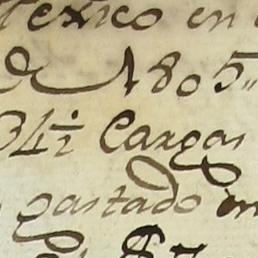 Mexico en
de 1805"
34½ Cargas
gastado en